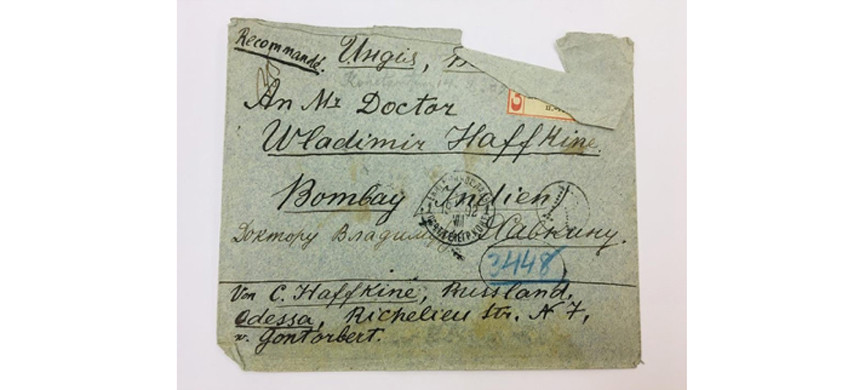 Recommandé.
Индія,
An Mr Doctor
Wladimir Haffkine.
Bombay Indien
Доктору Владимиру Хавкину.
3448
Von C. Haffkine, Russland,
Odessa, Richelieu Str. N 7,
v. Gontorbert.